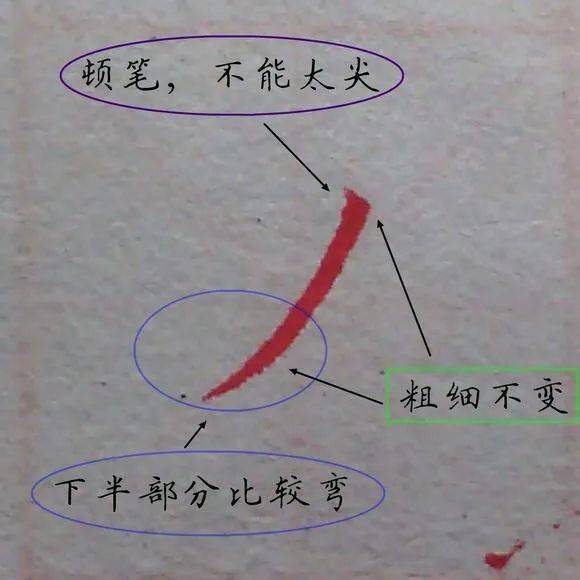 顿笔，不能太尖
粗细不变
下半部分比较弯